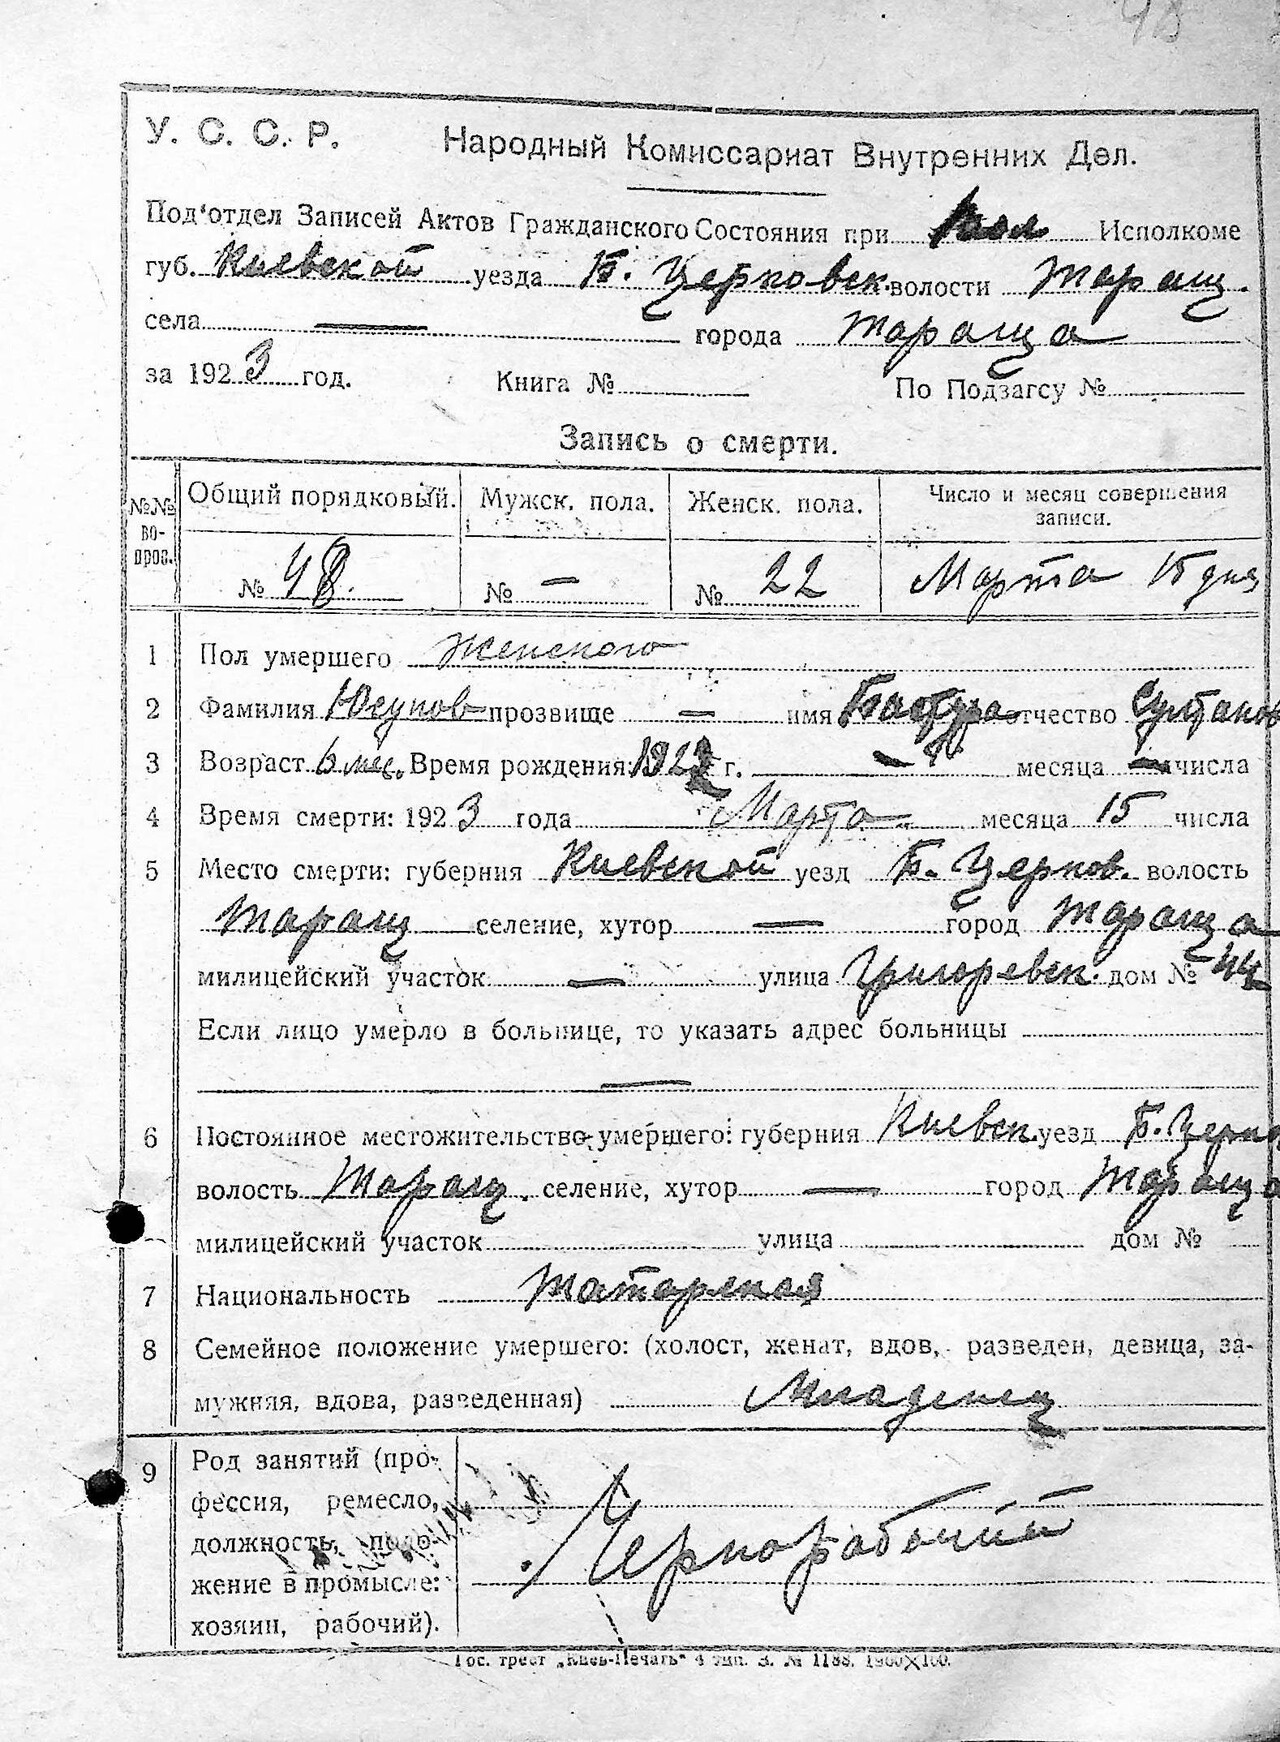 98
У. С. С. Р. Народный Комиссариат Внутренних Дел.
Под'отдел Записей Актов Гражданского Состояния при Вол Исполкоме
губ. Киевской уезда Б. Церковск. волости Таращ.
села — города Тараща
за 1923 год. Книга № По Подзагсу №
Запись о смерти.
№№ вопрос. Общий порядковый. Мужск. пола. Женск. пола. Число и месяц совершения записи.
№ 48. № — № 22 Марта 15 дня
1 Пол умершего Женского
2 Фамилия Юсупов прозвище — имя отчество Султанов
3 Возраст 6 мес. Время рождения: 1922 г. — месяца — числа
4 Время смерти: 1923 года Марта месяца 15 числа
5 Место смерти: губерния Киевской уезд Б. Церков. волость
Таращ селение, хутор — город Тараща
милицейский участок — улица Григоревск. дом № 44
Если лицо умерло в больнице, то указать адрес больницы
—
6 Постоянное местожительство умершего: губерния Киевск. уезд Б. Церков
волость Таращ. селение, хутор — город Тараща
милицейский участок улица дом №
7 Национальность татарская
8 Семейное положение умершего: (холост, женат, вдов, разведен, девица, за-
мужняя, вдова, разведенная) Младенец
9 Род занятий (про-
фессия, ремесло,
должность, поло-
жение в промысле:
хозяин, рабочий).
Чернорабочий
Гос. трест „Киев-Печать" 4 тип. З. № 1188. 1900×100.